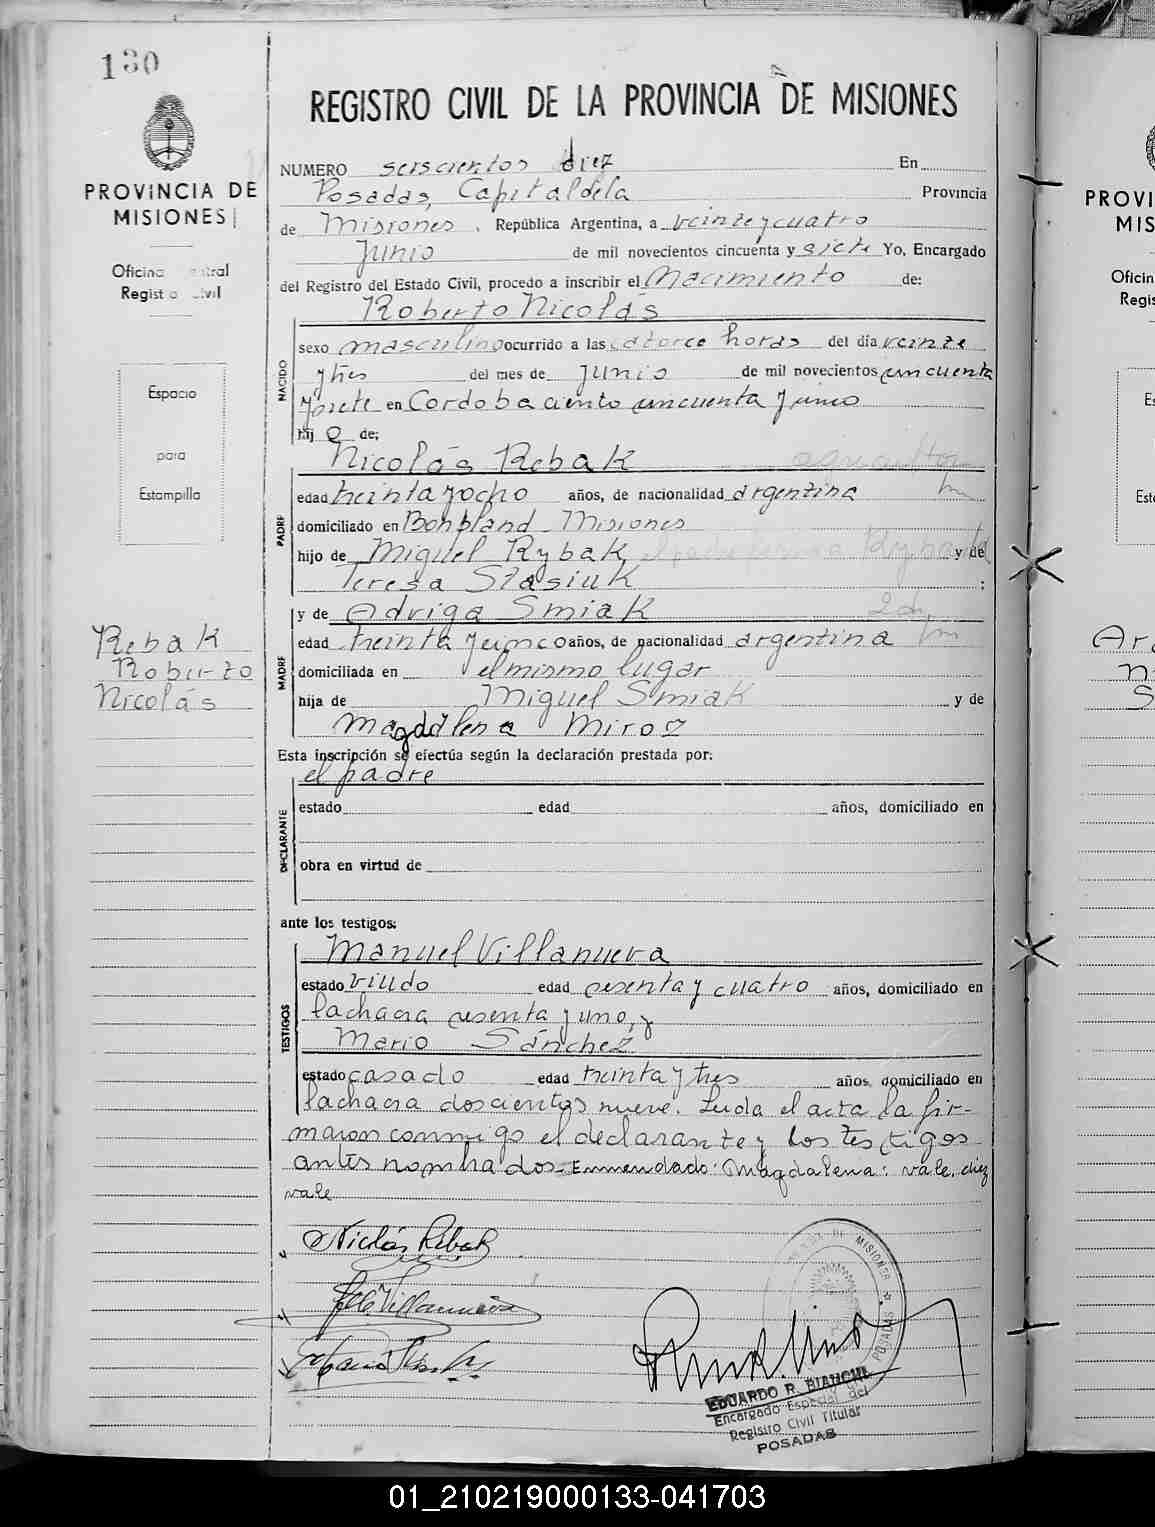 130
REGISTRO CIVIL DE LA PROVINCIA DE MISIONES
PROVINCIA DE
MISIONES
Oficina Central
Registro Civil
Espacio
para
Estampilla
Rebak
Roberto
Nicolás
NUMERO seiscientos diez En
Posadas, Capital de la Provincia
de Misiones, República Argentina, a veinte y cuatro
Junio de mil novecientos cincuenta y siete Yo, Encargado
del Registro del Estado Civil, procedo a inscribir el Nacimiento de:
Roberto Nicolás
NACIDO
sexo masculino ocurrido a las catorce horas del día veinte
y tres del mes de junio de mil novecientos cincuenta
y siete en Cordoba ciento cincuenta y cinco
hij o de:
Nicolás Rebak agricultor
PADRE
edad treinta y ocho años, de nacionalidad argentina
domiciliado en Bonpland Misiones
hijo de Miguel Rybak el padre firma Rybak y de
Teresa Stasiuk ;
y de Adviga Smiak
MADRE
edad treinta y cinco años, de nacionalidad argentina
domiciliada en el mismo lugar
hija de Miguel Smiak y de
Magdalena Miroz
Esta inscripción se efectúa según la declaración prestada por:
el padre
DECLARANTE
estado edad años, domiciliado en
obra en virtud de
ante los testigos:
Manuel Villanueva
TESTIGOS
estado viudo edad sesenta y cuatro años, domiciliado en
la chacra sesenta y uno, y
Mario Sánchez
estado casado edad treinta y tres años, domiciliado en
la chacra doscientos nueve. Leida el acta la fir-
maron conmigo el declarante y los testigos
antes nombrados.- Enmendado: Magdalena: vale. diez
vale
Nicolás Rebak
Villanueva
EDUARDO R. BIANCHI
Encargado Especial del
Registro Civil Titular
POSADAS
DE MISIONES ☆ POSADAS
PROVI
MIS
Oficin
Regis
Es
Este
01_210219000133-041703